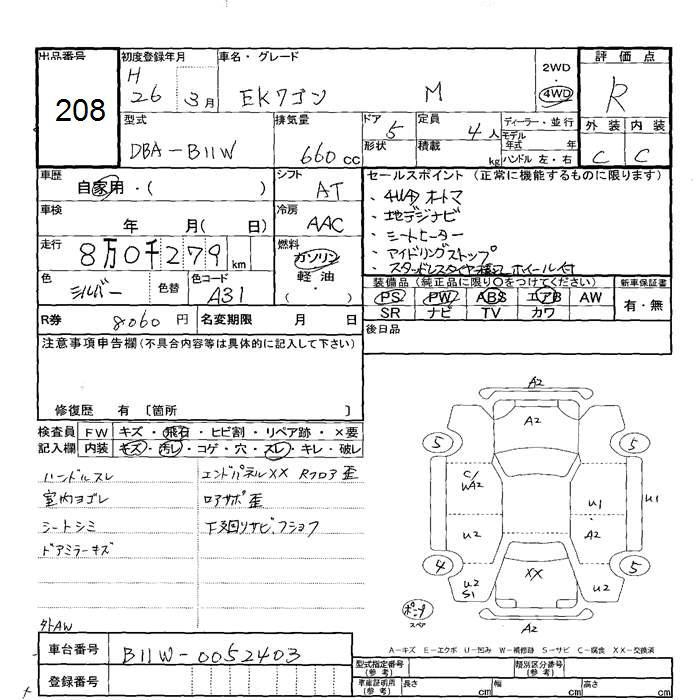 出品番号 初度登録年月 車名・グレード 2WD・4WD 評価点
208 H 26 3月 EKワゴン M R
型式 排気量 ドア形状 定員 ディーラー・並行 外装 内装
DBA-B11W 660cc 5 4人 積載 kg モデル年式 年 C C
ハンドル 左・右
車歴 自家用・( ) シフト AT セールスポイント (正常に機能するものに限ります)
車検 年 月( 日) 冷房 AAC ・4WD オートマ
・地デジナビ
走行 8万0千279km 燃料 ガソリン・軽油・( ) ・シートヒーター
・アイドリングストップ
色 シルバー 色替 色コード A31 ・スタッドレスタイヤ ホイール付
装備品 (純正品に限り○をつけてください) 新車保証書
PS PW ABS エアB AW 有・無
SR ナビ TV カワ
R券 8060円 名変期限 月 日 後日品
注意事項申告欄(不具合内容等は具体的に記入して下さい)
修復歴 有 [箇所 ]
検査員 FW キズ・飛石・ヒビ割・リペア跡・×要
記入欄 内装 キズ・汚レ・コゲ・穴・スレ・キレ・破レ
ハンドルスレ エンドパネルXX Rフロア歪
室内ヨゴレ ロアサポ歪
シートシミ 下回リサビ、フショク
ドアミラーキズ
外AW
A2
A2
5 5
C/WA2 U1 U1
U2 A2
4 5
XX
U2 S1 U2
パンク スペア A2
A-キズ E-エクボ U-凹み W-補修跡 S-サビ C-腐食 XX-交換済
車台番号 B11W-0052403
登録番号
型式指定番号(参考) 類別区分番号(参考)
車庫証明用(参考) 長さ cm 幅 cm 高さ cm